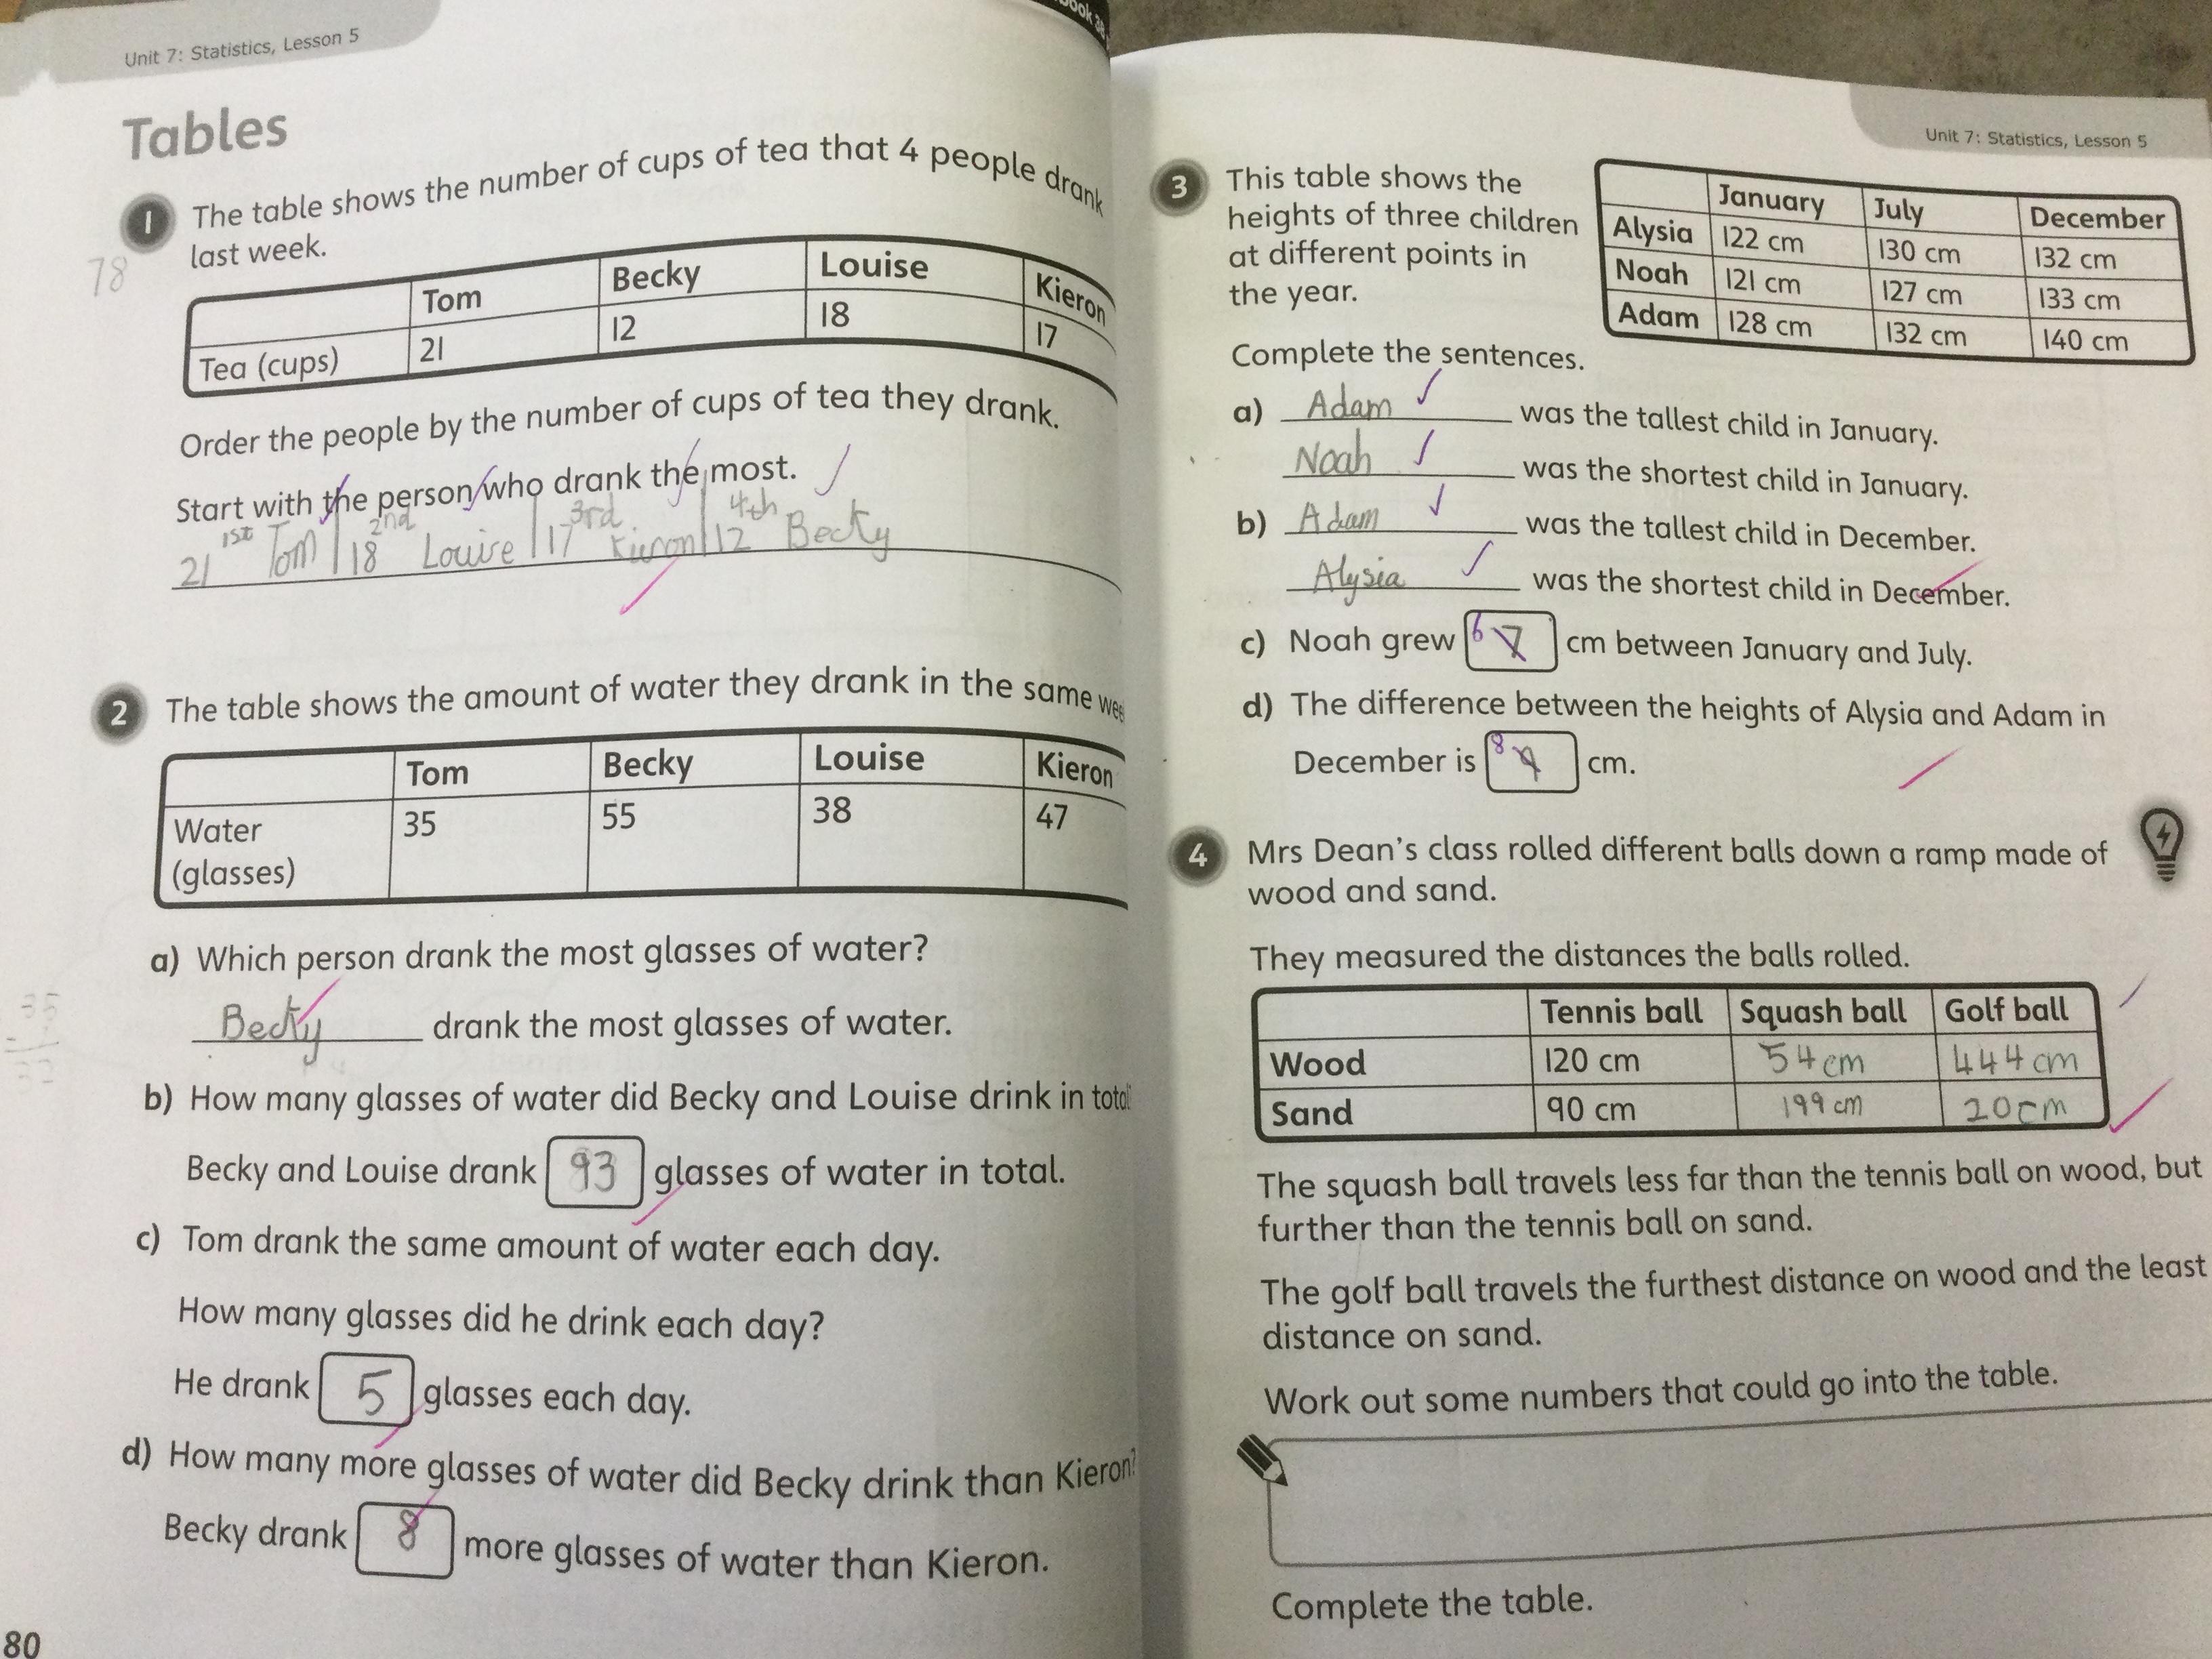 Unit 7: Statistics, Lesson 5
Tables
1 The table shows the number of cups of tea that 4 people drank
last week.
78
Tom Becky Louise Kieron
Tea (cups) 21 12 18 17
Order the people by the number of cups of tea they drank.
Start with the person who drank the most.
21 1st Tom | 18 2nd Louise | 17 3rd Kieron | 12 4th Becky
2 The table shows the amount of water they drank in the same
Tom Becky Louise Kieron
Water (glasses) 35 55 38 47
a) Which person drank the most glasses of water?
Becky drank the most glasses of water.
b) How many glasses of water did Becky and Louise drink in
Becky and Louise drank 93 glasses of water in total.
c) Tom drank the same amount of water each day.
How many glasses did he drink each day?
He drank 5 glasses each day.
d) How many more glasses of water did Becky drink than Kieron?
Becky drank 8 more glasses of water than Kieron.
80
Unit 7: Statistics, Lesson 5
3 This table shows the
heights of three children
at different points in
the year.
January July December
Alysia 122 cm 130 cm 132 cm
Noah 121 cm 127 cm 133 cm
Adam 128 cm 132 cm 140 cm
Complete the sentences.
a) Adam was the tallest child in January.
Noah was the shortest child in January.
b) Adam was the tallest child in December.
Alysia was the shortest child in December.
c) Noah grew 6 7 cm between January and July.
d) The difference between the heights of Alysia and Adam in
December is 8 9 cm.
4 Mrs Dean's class rolled different balls down a ramp made of
wood and sand.
They measured the distances the balls rolled.
Tennis ball Squash ball Golf ball
Wood 120 cm 54 cm 444 cm
Sand 90 cm 199 cm 20 cm
The squash ball travels less far than the tennis ball on wood, but
further than the tennis ball on sand.
The golf ball travels the furthest distance on wood and the least
distance on sand.
Work out some numbers that could go into the table.
Complete the table.